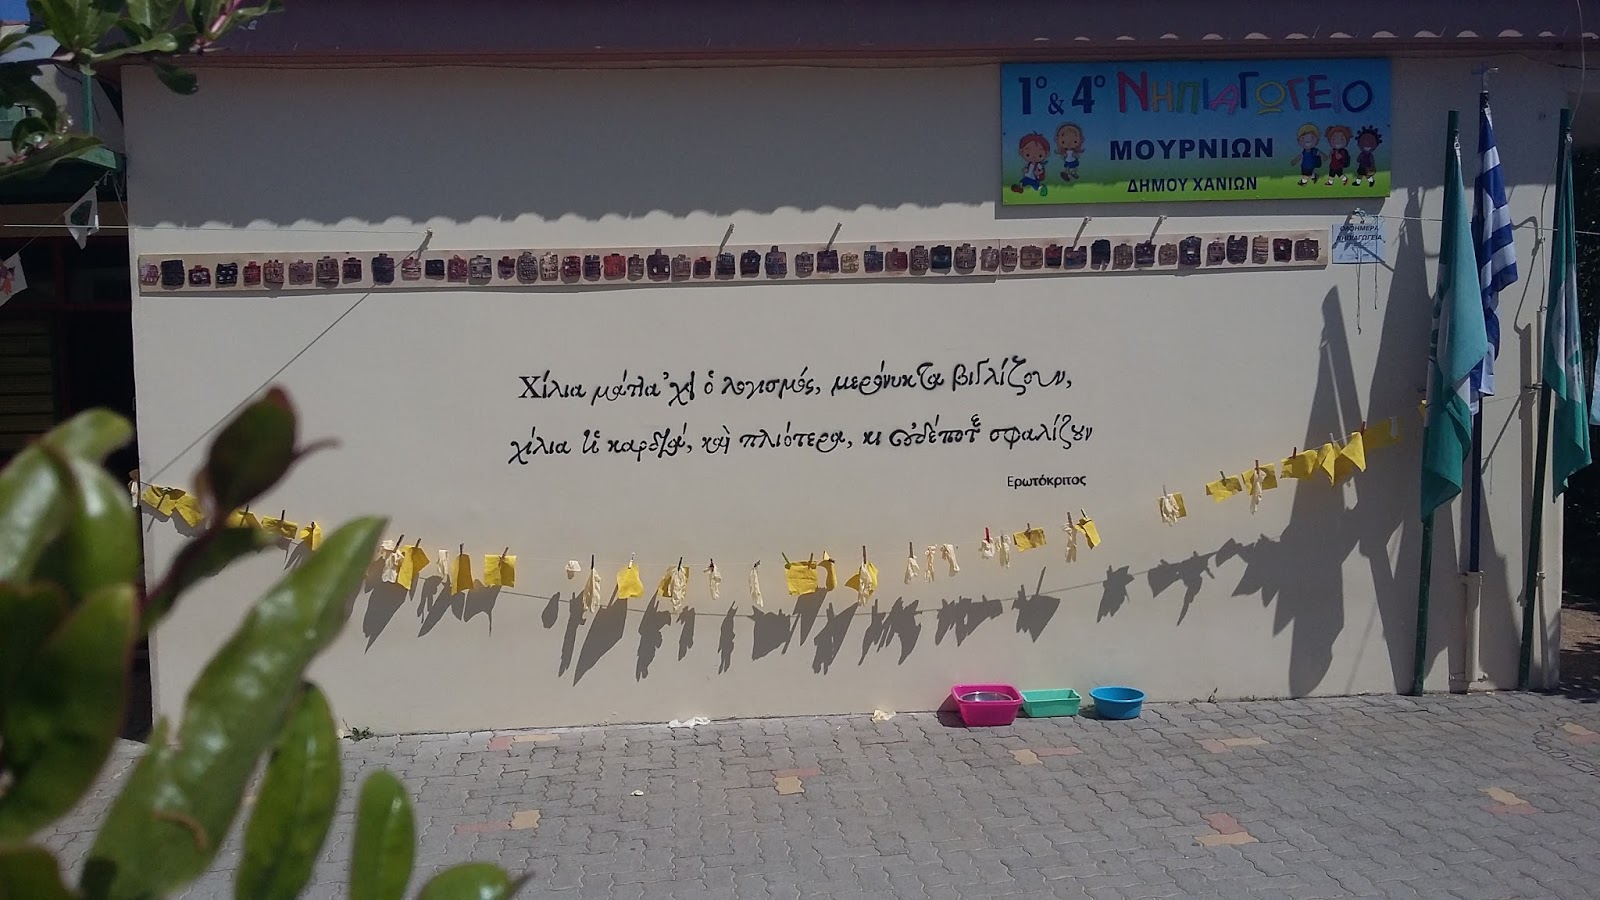 1ο & 4ο ΝηΠΙΑΓΩΓΕΙΟ
ΜΟΥΡΝΙΩΝ
ΔΗΜΟΥ ΧΑΝΙΩΝ
ΟΛΟΗΜΕΡΑ
ΝΗΠΙΑΓΩΓΕΙΑ
Χίλια μάτια 'χει ὁ λογισμός, μερόνυκτα βιγλίζουν,
χίλια ἡ καρδιά, καὶ πλιότερα, κι οὐδέποτε σφαλίζουν
Ερωτόκριτος